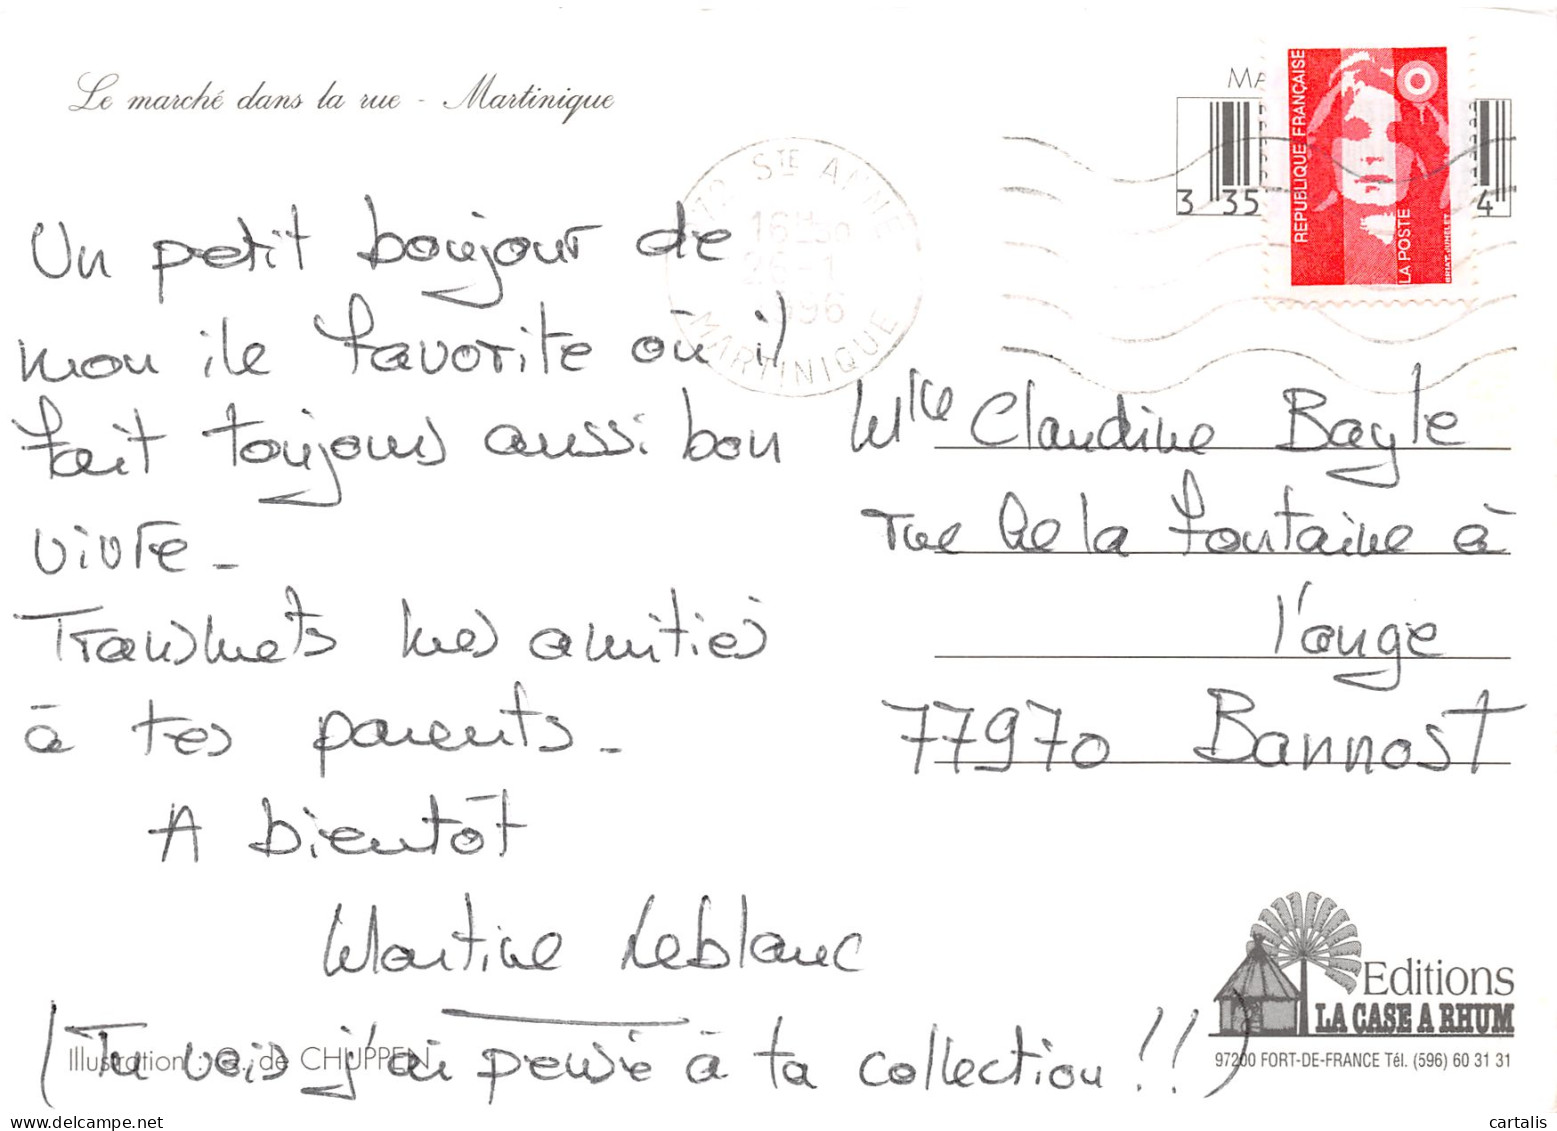 Le marché dans la rue - Martinique
STE ANNE
16H
26-1
1996
MARTINIQUE
3 35
4
REPUBLIQUE FRANÇAISE
LA POSTE
BRIAT-JUMELET
Un petit bonjour de
mon ile favorite où il
fait toujours aussi bon
vivre -
Transmets mes amitiés
à tes parents -
A bientôt
Martine Leblanc
(Tu vois j'ai pensé à ta collection !!)
Mlle Claudine Bayle
rue de la fontaine à
l'ange
77970 Bannost
Illustration : de CHUPPEN
Editions
LA CASE A RHUM
97200 FORT-DE-FRANCE Tél. (596) 60 31 31
cartalis